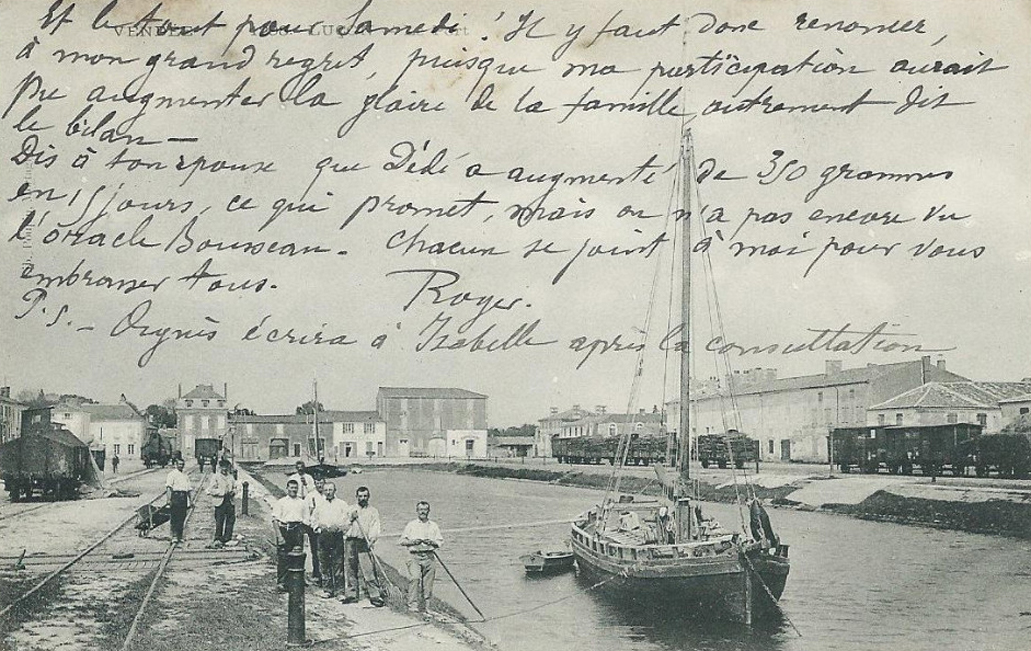 Et le tout pour Samedi ! Il y faut donc renoncer,
VENDÉE LUÇON Port
à mon grand regret, puisque ma participation aurait
pu augmenter la gloire de la famille, autrement dit
le bilan —
Dis à ton epoux que Dédé a augmenté de 350 grammes
en 15 jours, ce qui promet, mais on n'a pas encore vu
l'oracle Bousseau. Chacun se joint à moi pour vous
embrasser tous. Roger.
P.S. — Agnès écrira à Izabelle après la consultation